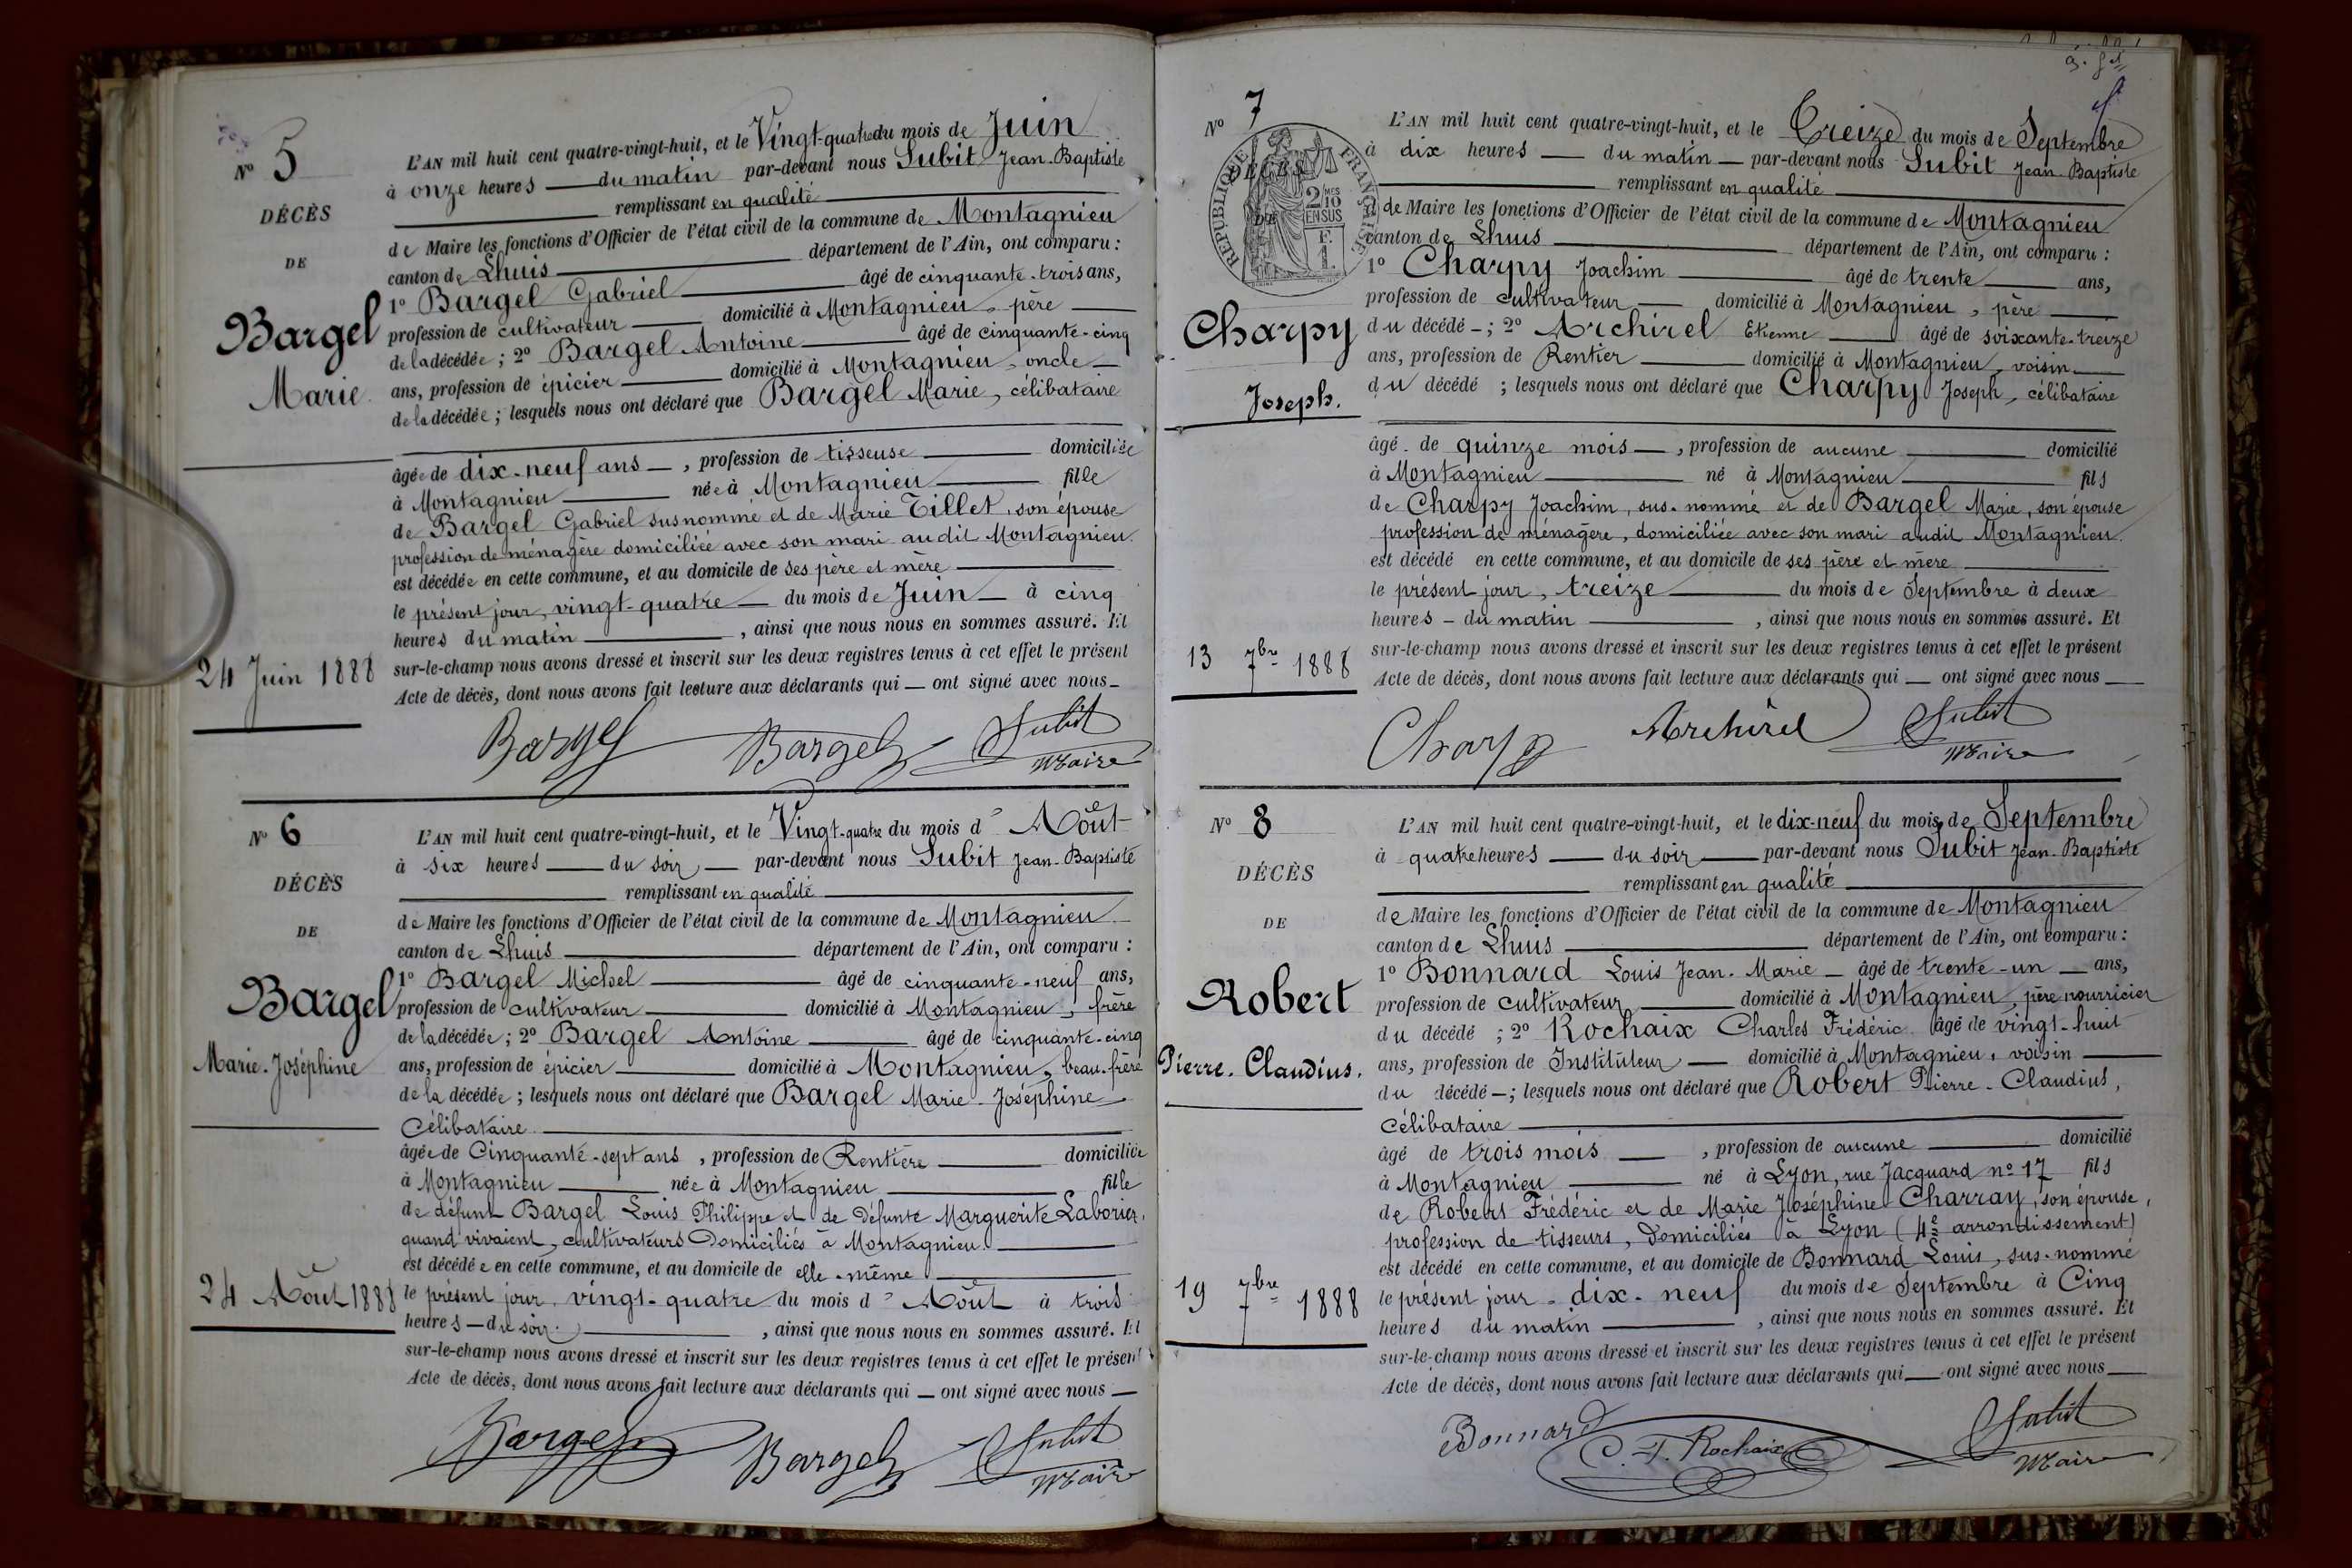 Nº 5
DÉCÈS
DE
Bargel
Marie
24 Juin 1888
L'AN mil huit cent quatre-vingt-huit, et le Vingt-quatre du mois de Juin
à onze heures du matin par-devant nous Subit Jean-Baptiste
remplissant en qualité
de Maire les fonctions d'Officier de l'état civil de la commune de Montagnieu
canton de Lhuis département de l'Ain, ont comparu :
1º Bargel Gabriel âgé de cinquante-trois ans,
profession de cultivateur domicilié à Montagnieu, père
de la décédée ; 2º Bargel Antoine âgé de cinquante-cinq
ans, profession de épicier domicilié à Montagnieu, oncle
de la décédée ; lesquels nous ont déclaré que Bargel Marie, célibataire
âgée de dix-neuf ans, profession de tisseuse domiciliée
à Montagnieu née à Montagnieu fille
de Bargel Gabriel susnommé et de Marie Tillet, son épouse
profession de ménagère domiciliée avec son mari audit Montagnieu.
est décédée en cette commune, et au domicile de ses père et mère
le présent jour, vingt-quatre du mois de Juin à cinq
heures du matin, ainsi que nous nous en sommes assuré. Et
sur-le-champ nous avons dressé et inscrit sur les deux registres tenus à cet effet le présent
Acte de décès, dont nous avons fait lecture aux déclarants qui ont signé avec nous
Bargel Bargel Subit
Maire
Nº 6
DÉCÈS
DE
Bargel
Marie-Joséphine
24 Août 1888
L'AN mil huit cent quatre-vingt-huit, et le Vingt-quatre du mois d'Août
à six heures du soir par-devant nous Subit Jean-Baptiste
remplissant en qualité
de Maire les fonctions d'Officier de l'état civil de la commune de Montagnieu
canton de Lhuis département de l'Ain, ont comparu :
1º Bargel Michel âgé de cinquante-neuf ans,
profession de cultivateur domicilié à Montagnieu, frère
de la décédée ; 2º Bargel Antoine âgé de cinquante-cinq
ans, profession de épicier domicilié à Montagnieu, beau-frère
de la décédée ; lesquels nous ont déclaré que Bargel Marie-Joséphine
Célibataire
âgée de Cinquante-sept ans, profession de Rentière domiciliée
à Montagnieu née à Montagnieu fille
de défunt Bargel Louis Philippe et de Défunte Marguerite Laborier,
quand vivaient, cultivateurs Domiciliés à Montagnieu.
est décédée en cette commune, et au domicile de elle-même
le présent jour, vingt-quatre du mois d'Août à trois
heures du soir, ainsi que nous nous en sommes assuré. Et
sur-le-champ nous avons dressé et inscrit sur les deux registres tenus à cet effet le présent
Acte de décès, dont nous avons fait lecture aux déclarants qui ont signé avec nous
Bargel Bargel Subit
Maire
Nº 7
RÉPUBLIQUE FRANÇAISE
2 MES
10
EN SUS
F.
1.
DÉCÈS
DE
Charpy
Joseph.
13 7bre 1888
L'AN mil huit cent quatre-vingt-huit, et le Treize du mois de Septembre
à dix heures du matin par-devant nous Subit Jean-Baptiste
remplissant en qualité
de Maire les fonctions d'Officier de l'état civil de la commune de Montagnieu
canton de Lhuis département de l'Ain, ont comparu :
1º Charpy Joachim âgé de trente ans,
profession de cultivateur domicilié à Montagnieu, père
du décédé ; 2º Archirel Etienne âgé de soixante-treize
ans, profession de Rentier domicilié à Montagnieu, voisin
du décédé ; lesquels nous ont déclaré que Charpy Joseph, célibataire
âgé de quinze mois, profession de aucune domicilié
à Montagnieu né à Montagnieu fils
de Charpy Joachim, sus-nommé et de Bargel Marie, son épouse
profession de ménagère, domiciliée avec son mari audit Montagnieu.
est décédé en cette commune, et au domicile de ses père et mère
le présent jour, treize du mois de Septembre à deux
heures du matin, ainsi que nous nous en sommes assuré. Et
sur-le-champ nous avons dressé et inscrit sur les deux registres tenus à cet effet le présent
Acte de décès, dont nous avons fait lecture aux déclarants qui ont signé avec nous
Charpy Archirel Subit
Maire
Nº 8
DÉCÈS
DE
Robert
Pierre-Claudius.
19 7bre 1888
L'AN mil huit cent quatre-vingt-huit, et le dix-neuf du mois de Septembre
à quatre heures du soir par-devant nous Subit Jean-Baptiste
remplissant en qualité
de Maire les fonctions d'Officier de l'état civil de la commune de Montagnieu
canton de Lhuis département de l'Ain, ont comparu :
1º Bonnard Louis Jean-Marie âgé de trente-un ans,
profession de cultivateur domicilié à Montagnieu, père nourricier
du décédé ; 2º Rochaix Charles Frédéric âgé de vingt-huit
ans, profession de Instituteur domicilié à Montagnieu, voisin
du décédé ; lesquels nous ont déclaré que Robert Pierre-Claudius,
Célibataire
âgé de trois mois, profession de aucune domicilié
à Montagnieu né à Lyon, rue Jacquard nº 17 fils
de Robert Frédéric et de Marie Joséphine Charray, son épouse,
profession de tisseurs, Domiciliés à Lyon (4e arrondissement)
est décédé en cette commune, et au domicile de Bonnard Louis, sus-nommé
le présent jour, dix-neuf du mois de Septembre à Cinq
heures du matin, ainsi que nous nous en sommes assuré. Et
sur-le-champ nous avons dressé et inscrit sur les deux registres tenus à cet effet le présent
Acte de décès, dont nous avons fait lecture aux déclarants qui ont signé avec nous
Bonnard C. F. Rochaix Subit
Maire